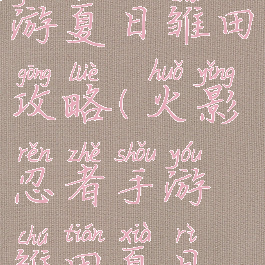 游夏日雏田
gōng lüè huǒ yǐng
攻略(火影
rěn zhě shǒu yóu
忍者手游
chú tián xià rì
雏田夏日